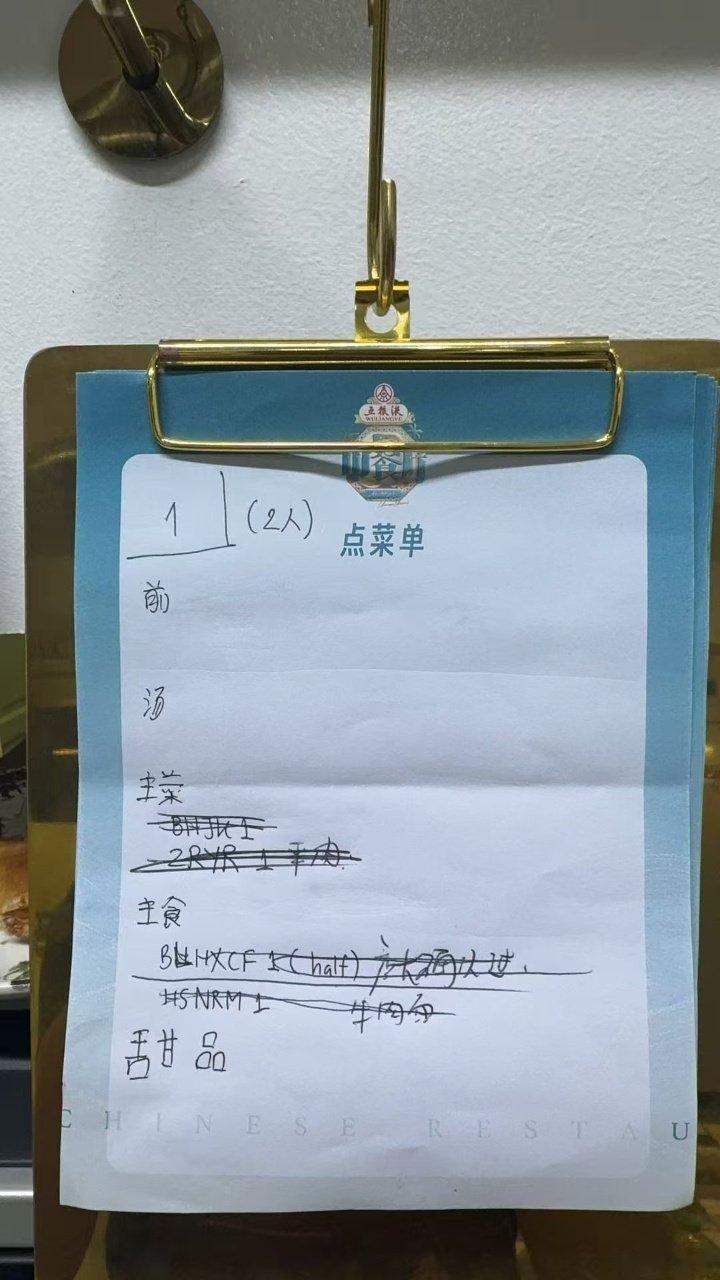 五粮液
WULIANGYE
餐
点菜单
1 (2人)
前
汤
主菜
BHJK 1
ZRYR 1 羊肉
主食
HXCF 1 (half)
HSNRM 1 牛肉面
甜品
CHINESE RESTAU